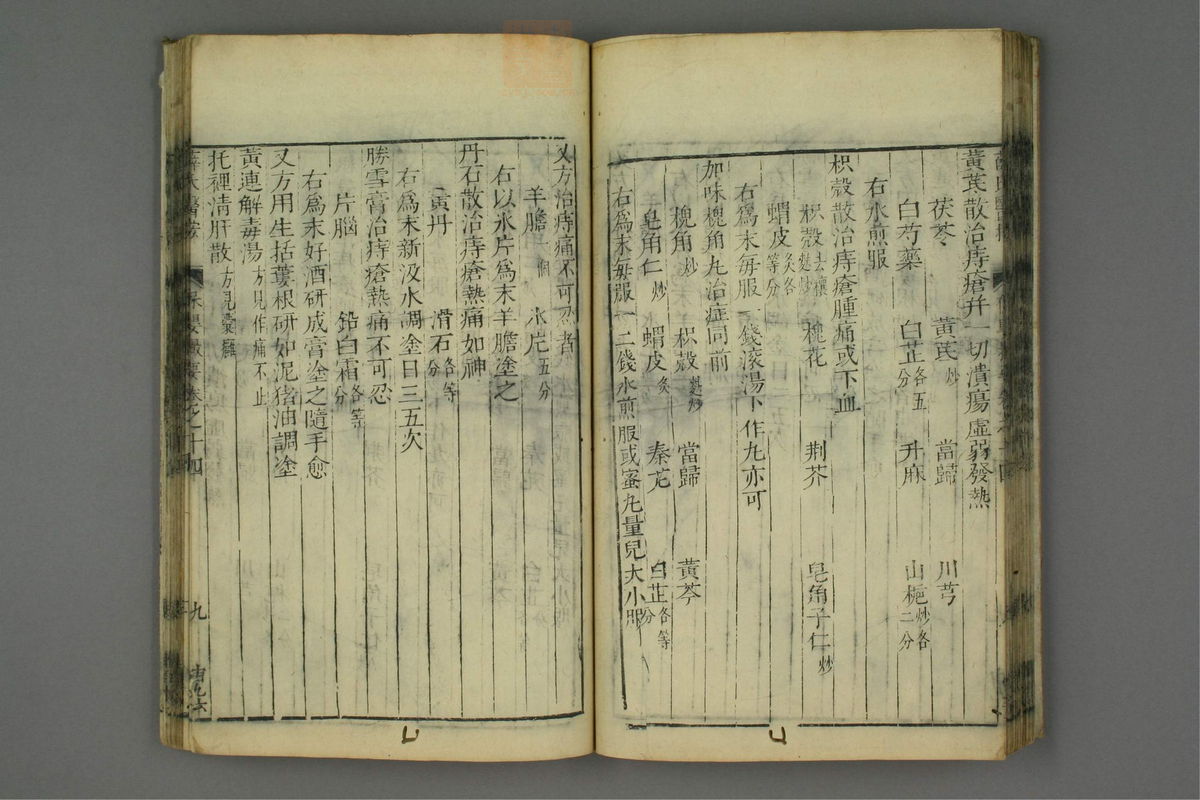 黃芪散治痔瘡幷一切潰瘍虛弱發熱
茯苓 黃芪炒 當歸 川芎
白芍藥 白芷各五分 升麻 山梔炒各二分
右水煎服
枳殼散治痔瘡腫痛或下血
枳殼去穰麩炒 槐花 荆芥 皂角子仁炒
蝟皮炙各等分
右爲末每服一錢滚湯下作丸亦可
加味槐角丸治症同前
槐角炒 枳殼麩炒 當歸 黃芩
皂角仁炒 蝟皮炙 秦艽 白芷各等分
右爲末每服一二錢水煎服或蜜丸量兒大小服
又方治痔痛不可忍者
羊膽一個 氷片五分
右以氷片爲末羊膽塗之
丹石散治痔瘡熱痛如神
黃丹 滑石各等分
右爲末新汲水調塗日三五次
勝雪膏治痔瘡熱痛不可忍
片腦 鉛白霜各等分
右爲末好酒研成膏塗之隨手愈
又方用生括蔞根研如泥猪油調塗
黃連解毒湯方見作痛不止
托裡清肝散方見囊癰
薛氏醫按 保嬰撮要卷之十四 九